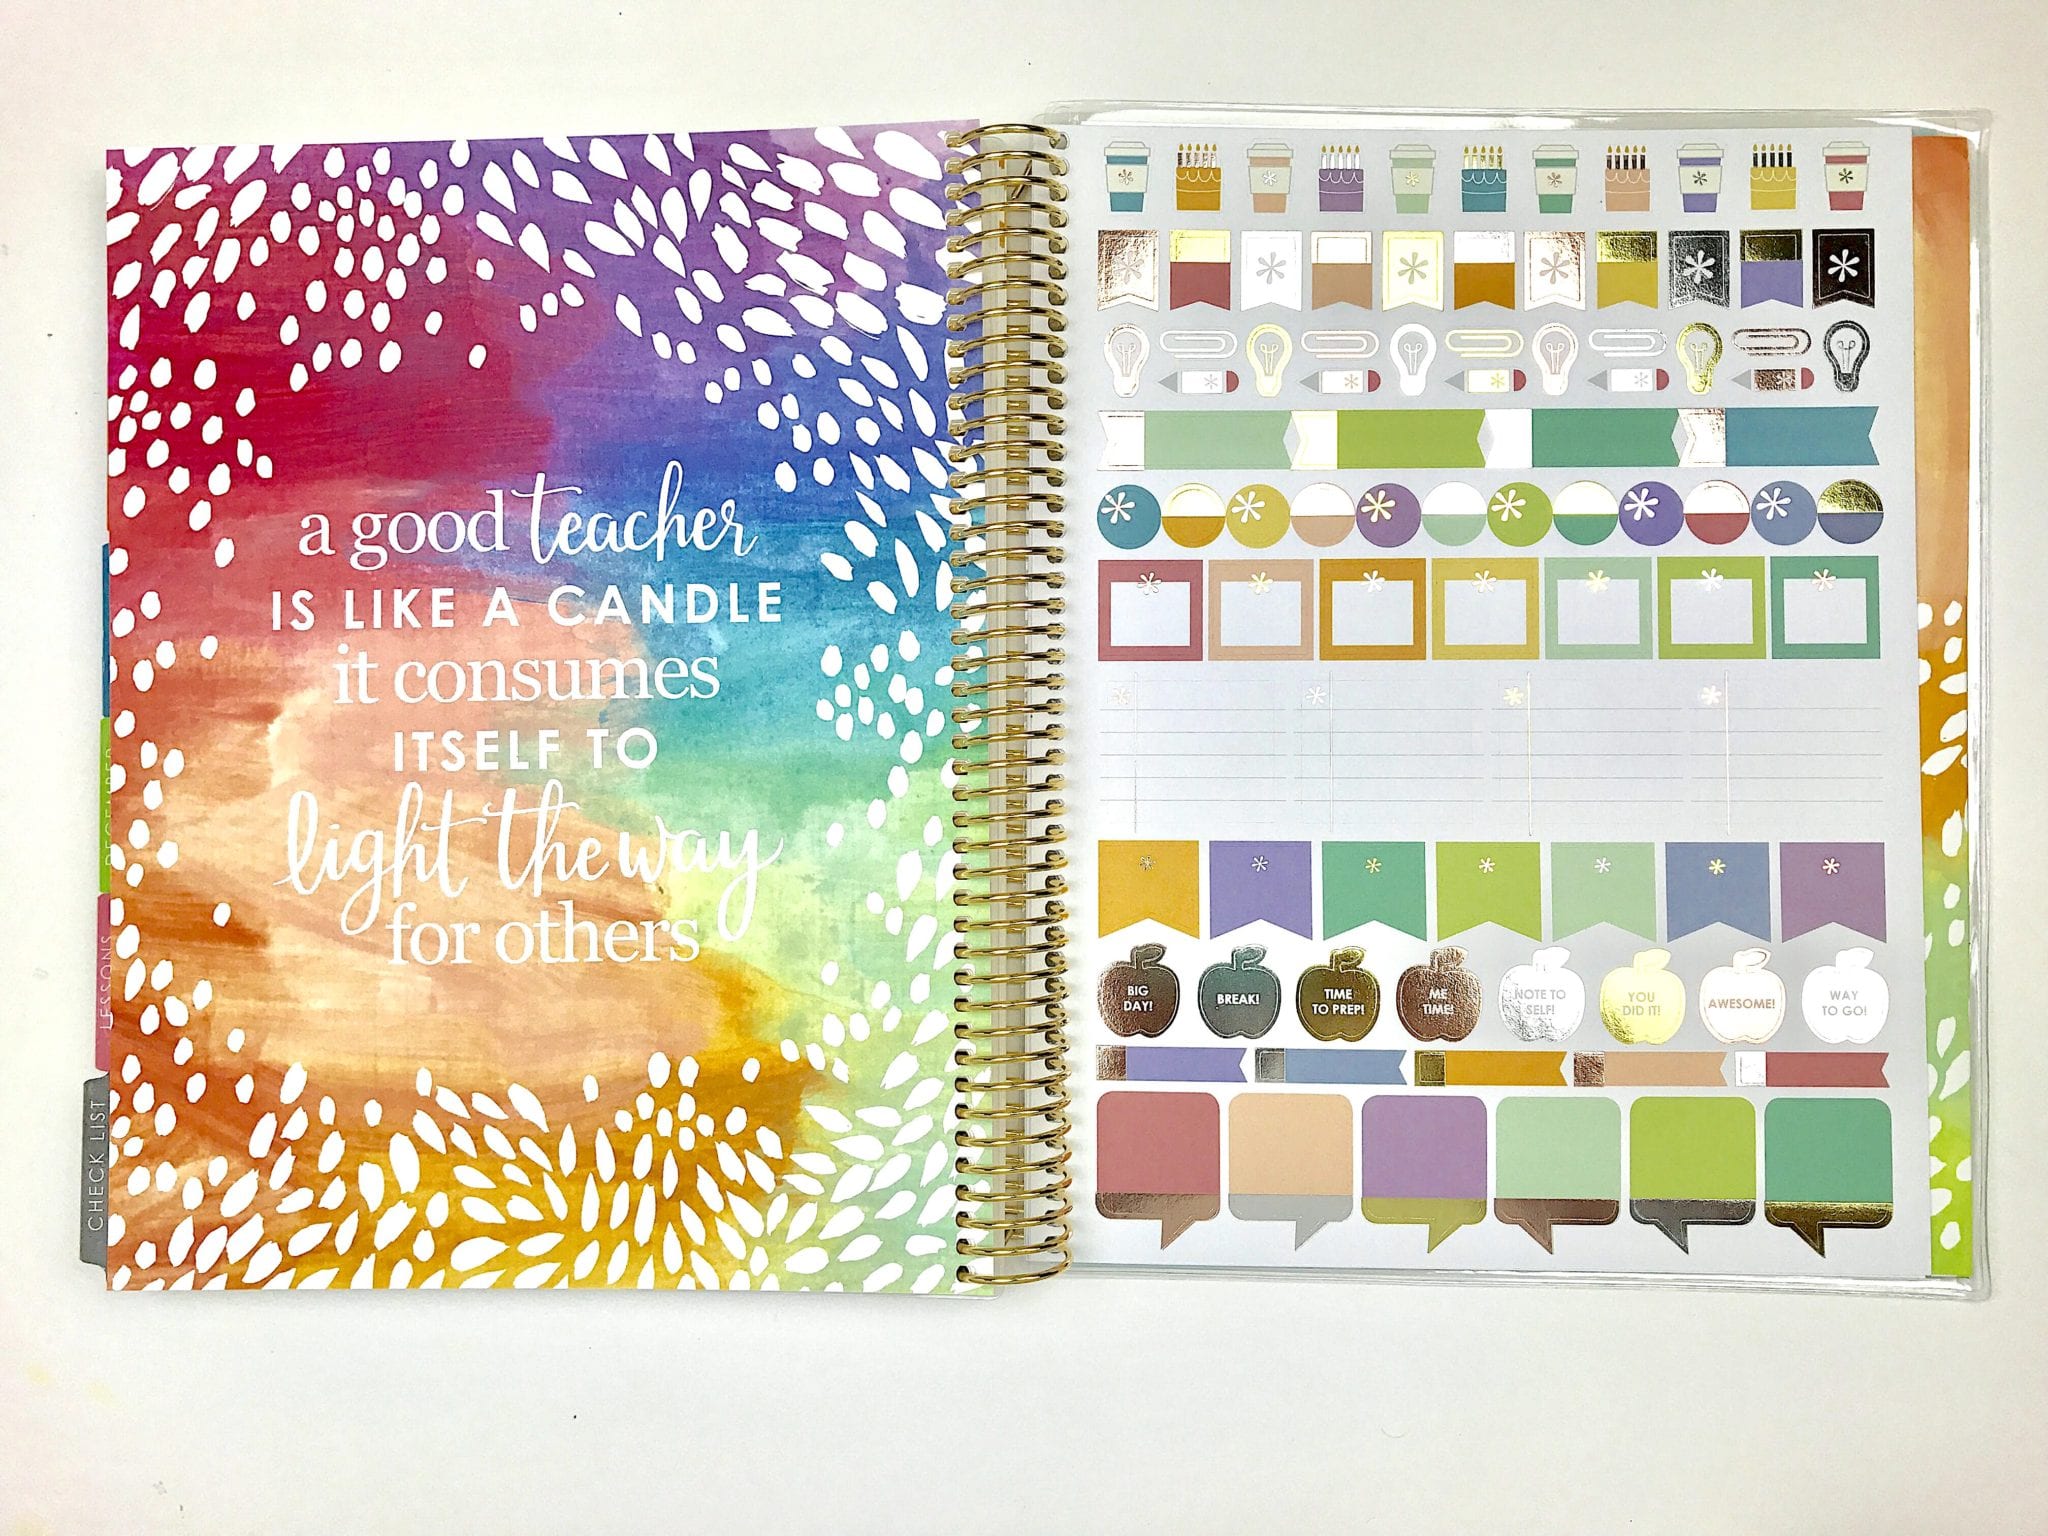 a good teacher
IS LIKE A CANDLE
it consumes
ITSELF TO
light the way
for others
DECEMBER
LESSONS
CHECK LIST
BIG
DAY!
BREAK!
TIME
TO PREP!
ME
TIME!
NOTE TO
SELF!
YOU
DID IT!
AWESOME!
WAY
TO GO!